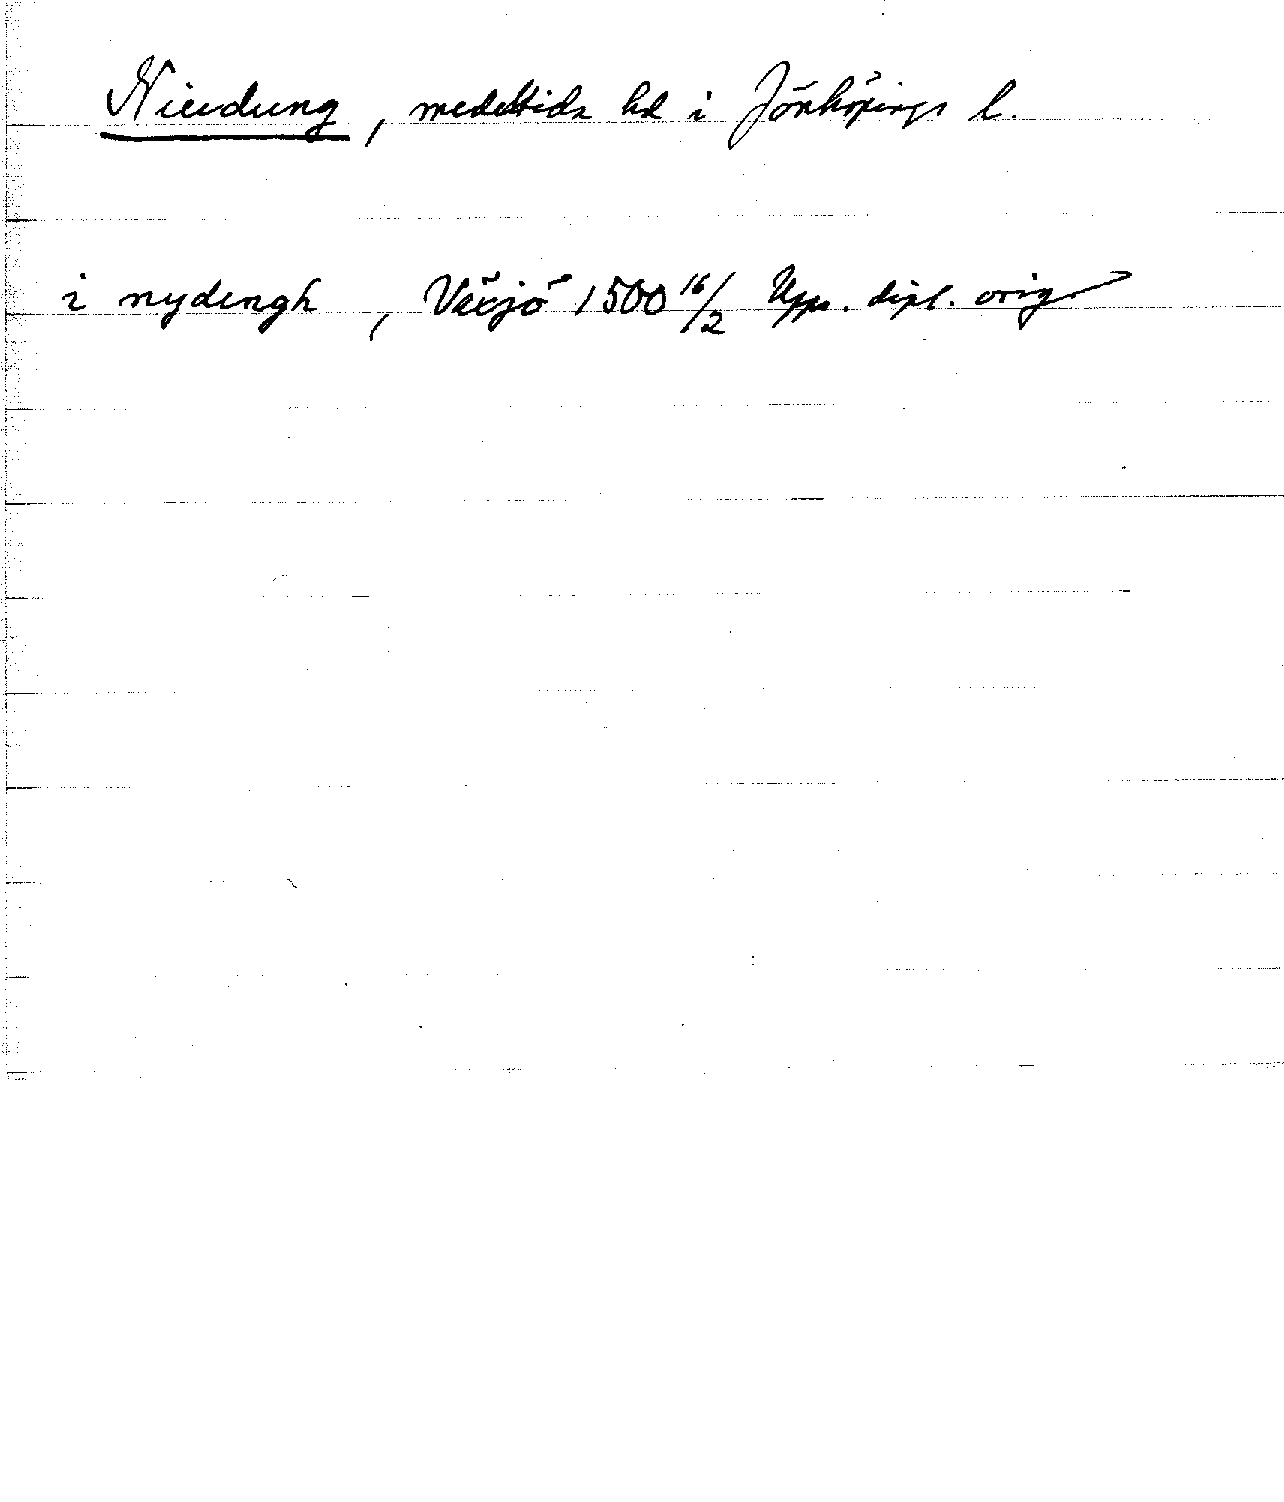 Niudung, medeltida hd i Jönköpings l.
i nydengh, Växjö 1500 16/2 Upps. dipl. orig